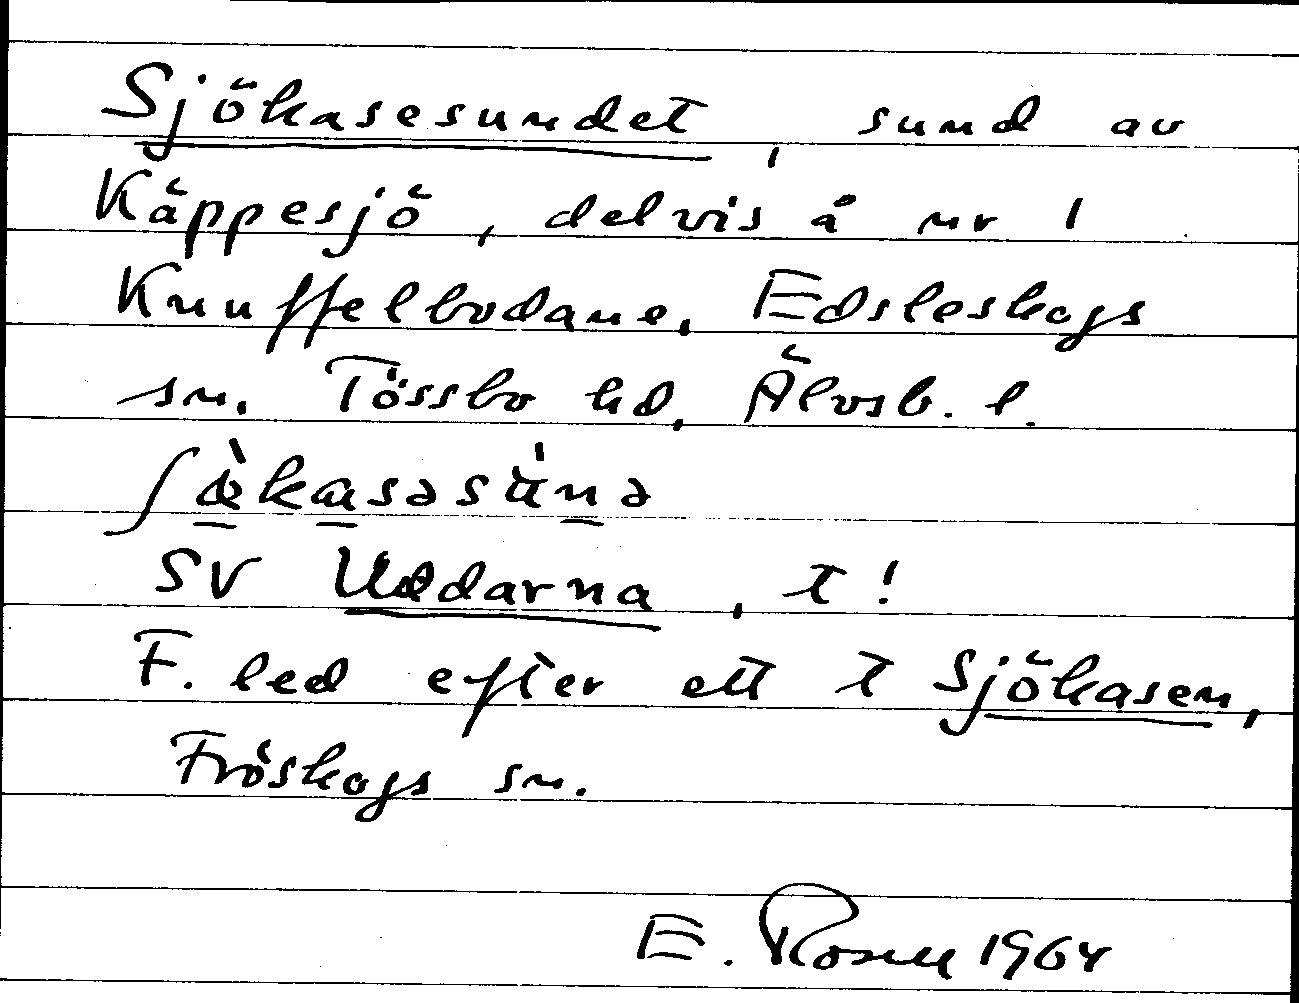 Sjökasesundet, sund av
Käppesjö, delvis å nr 1
Knuffelbodane, Edsleskogs
sn. Tössbo hd, Älvsb. l.
ʃæ̀kasəsúnə
SV Uddarna, t!
F. led efter ett t Sjökasen,
Fröskogs sn.
E. Rosell 1964